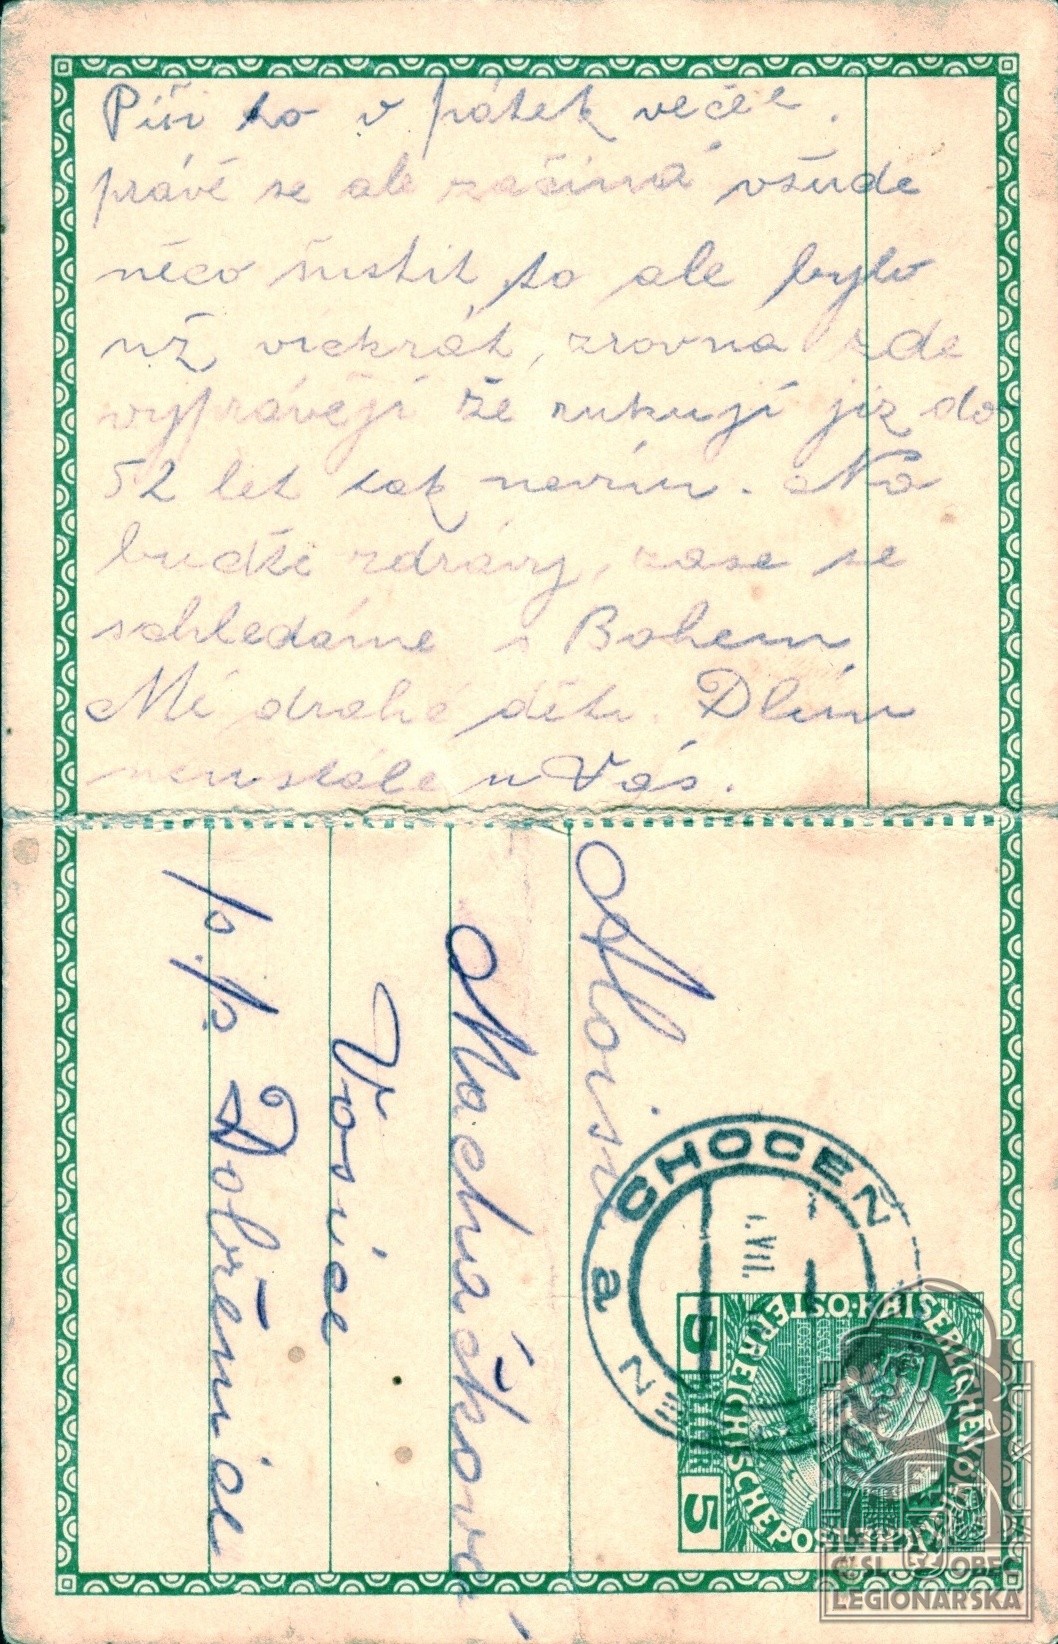 Píši to v pátek večer.
právě se ale začíná všude
něco šustit, to ale bylo
už víckrát, zrovna zde
vyprávějí že rukují již do
52 let tak nevím. No
buďte zdrávy, zase se
shledáme s Bohem
Mé drahé děti. Dlím
neustále u Vás.
Aloisie
Macháčková
Vosice
p./p. Dobřenice
CHOCEŇ
a
VII.
5 HELLER 5
KAISERLICHE KÖNIGLICHE
ÖSTERREICHISCHE POST
ČSL. OBEC
LEGIONÁŘSKÁ